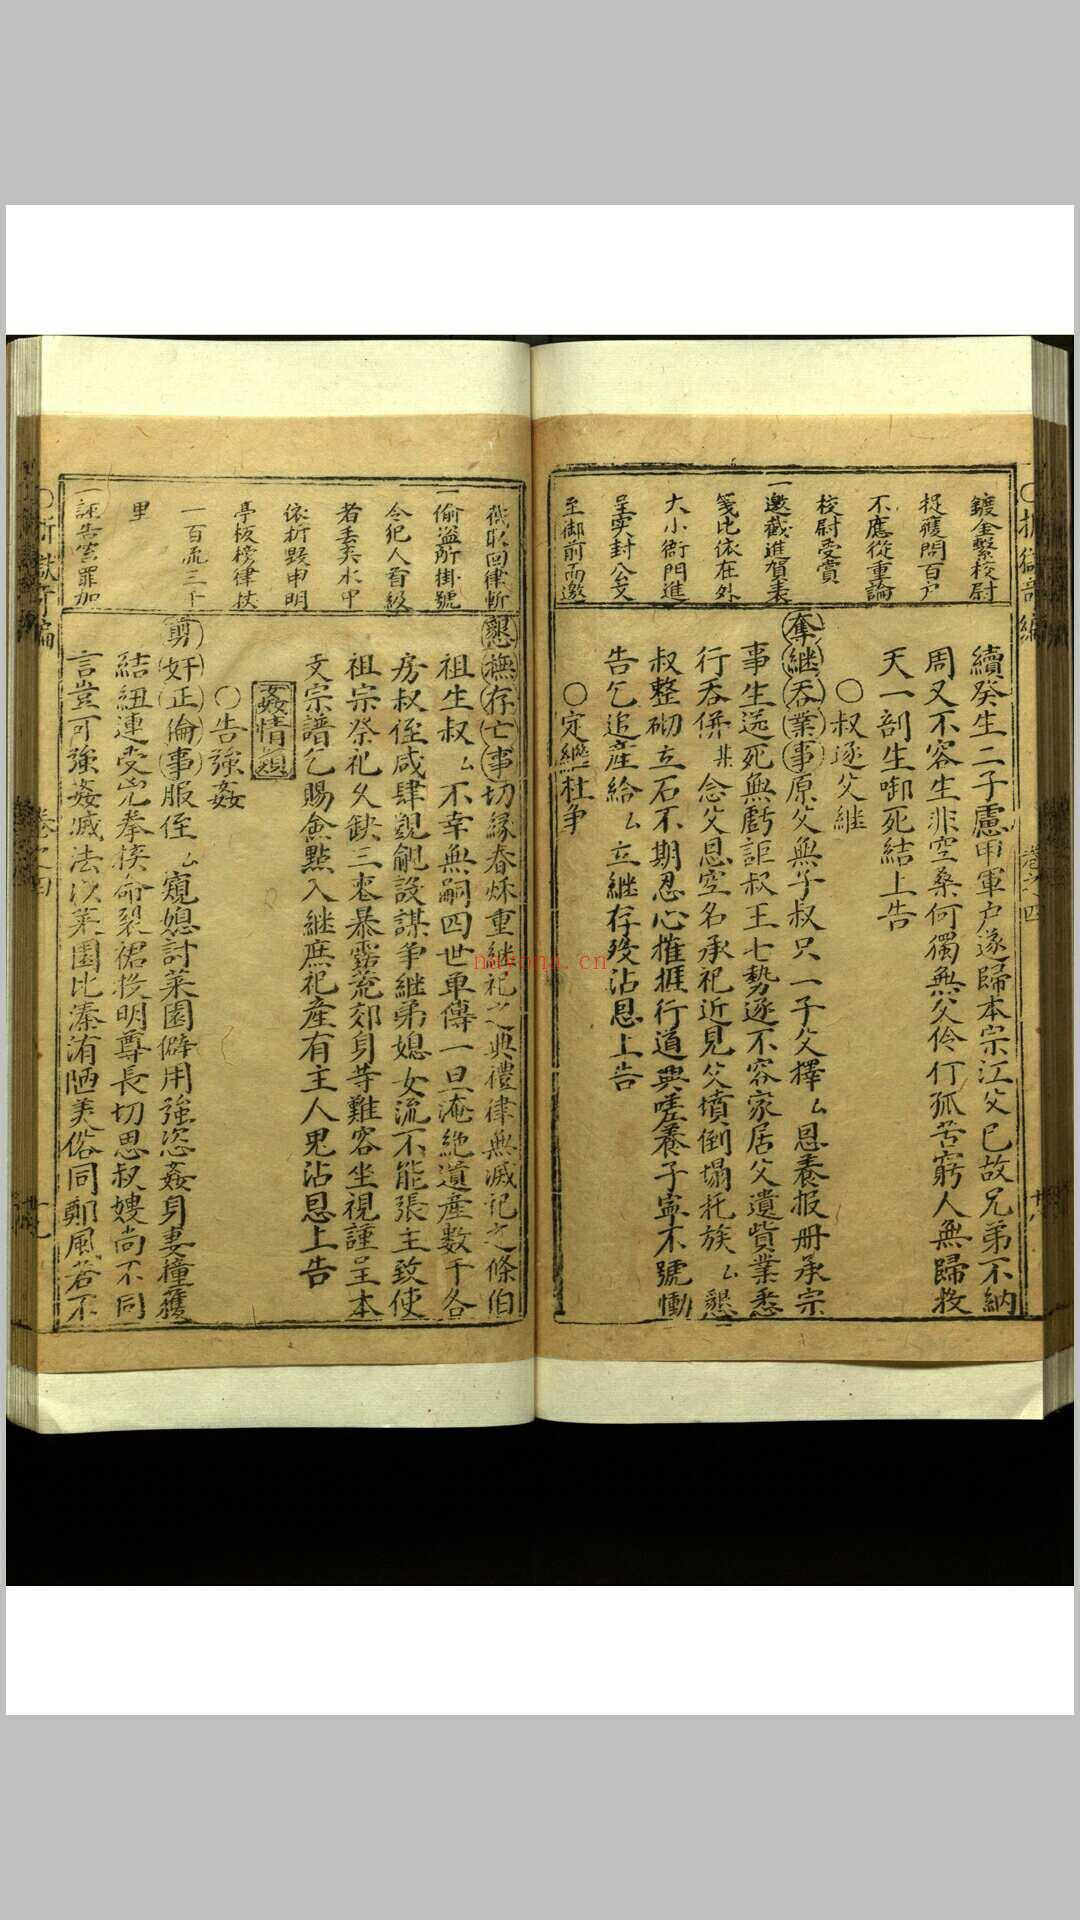 鍍金繫校尉
捉獲問百户
不應從重論
校尉受賞
一邀截進賀表
箋比依在外
大小衙門進
呈實封公文
至御前而邀
續癸生二子慮甲軍户遂歸本宗江父已故兄弟不納
周又不容生非空桑何獨無父伶仃孤苦窮人無歸救
天一剖生啣死結上告
○叔逐父継
奪継吞業事原父無子叔只一子父擇厶恩養报册承宗
事生送死無虧詎叔王七勢逐不容家居父遺貲業悉
行吞併某念父恩空名承祀近見父墳倒塌托族厶懇
叔整砌立石不期忍心摧捱行道興嗟養子寧不號慟
告乞追產給厶立継存殁沾恩上告
○定継杜争
截取回律斬
一偷盗所掛號
令犯人首級
者丟弃水中
依折毀申明
亭板榜律杖
一百流三千
里
一誣告害罪加
懇撫存亡事切緣春秋重継祀之典禮律無滅祀之條伯
祖生叔厶不幸無嗣四世單傳一旦淹絶遺產數千各
房叔侄咸肆覬覦設謀争継弟媳女流不能張主致使
祖宗祭祀久缺三喪暴露荒郊身等難容坐視謹呈本
支宗譜乞賜僉點入継庶祀產有主人鬼沾恩上告
姦情類
○告強姦
剪奸正倫事服侄厶窺媳討菜園僻用強恣姦身妻撞獲
結紐連受兇拳挨命裂裙投明尊長切思叔嫂尚不同
言豈可強姦滅法以菜園比溱洧陋美俗同鄭風若不
卷之四
nuyona.cn